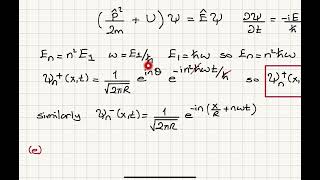 (p̂²/2m + U) Ψ = Ê Ψ   ∂Ψ/∂t = -iE/ħ
Eₙ = n²E₁   ω = E₁/ħ   E₁ = ħω   so Eₙ = n²ħω
Ψₙ⁺(x,t) = 1/√(2πR) e^{inθ} e^{-in²ħωt/ħ}   so Ψₙ⁺(x,
similarly Ψₙ⁻(x,t) = 1/√(2πR) e^{-in(x/R + nωt)}
(e)